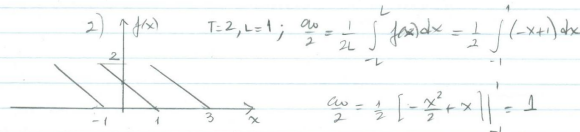 2) f(x) T=2, L=1 ; a₀/2 = 1/2L ∫_{-L}^{L} f(x)dx = 1/2 ∫_{-1}^{1} (-x+1) dx
2
-1 1 3 x
a₀/2 = 1/2 [-x²/2 + x] |_{-1}^{1} = 1